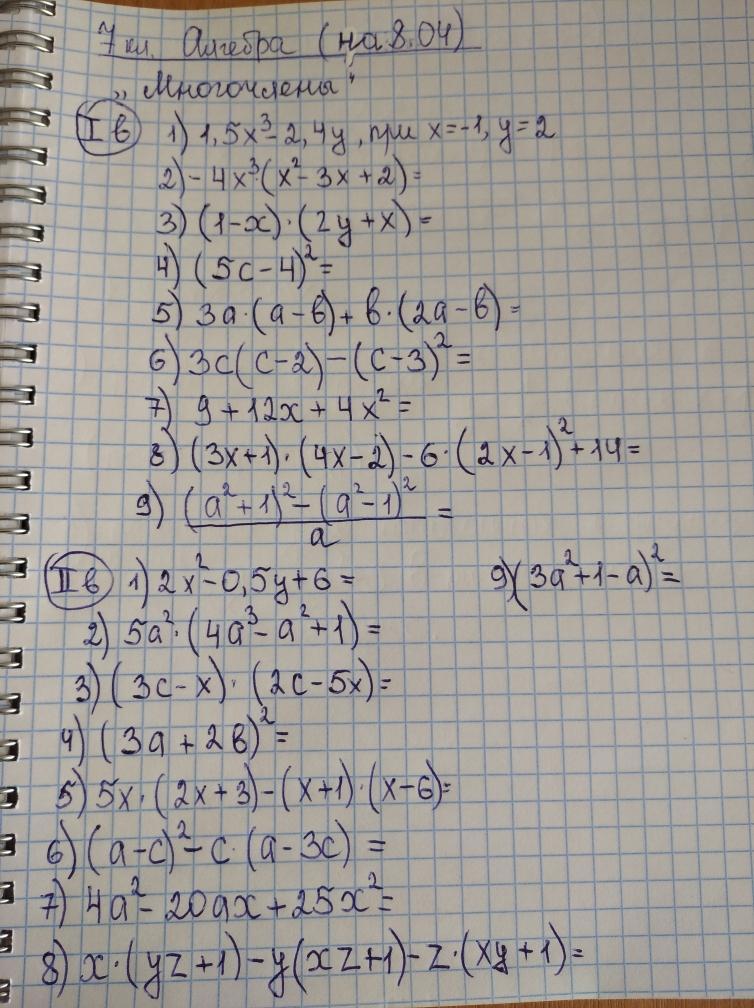 7 кл. Алгебра (на 8.04)
„Многочлены"
I в 1) 1,5x³ - 2,4y, при x=-1, y=2
2) -4x³·(x² - 3x + 2) =
3) (1-x)·(2y+x) =
4) (5c-4)² =
5) 3a·(a-в) + в·(2a-в) =
6) 3c(c-2) - (c-3)² =
7) 9 + 12x + 4x² =
8) (3x+1)·(4x-2) - 6·(2x-1)² + 14 =
9) ((a²+1)² - (a²-1)²)/a =
II в 1) 2x² - 0,5y + 6 = 9) (3a²+1-a)² =
2) 5a²·(4a³ - a² + 1) =
3) (3c-x)·(2c-5x) =
4) (3a+2в)² =
5) 5x·(2x+3) - (x+1)·(x-6) =
6) (a-c)² - c·(a-3c) =
7) 4a² - 20ax + 25x² =
8) x·(yz+1) - y(xz+1) - z·(xy+1) =